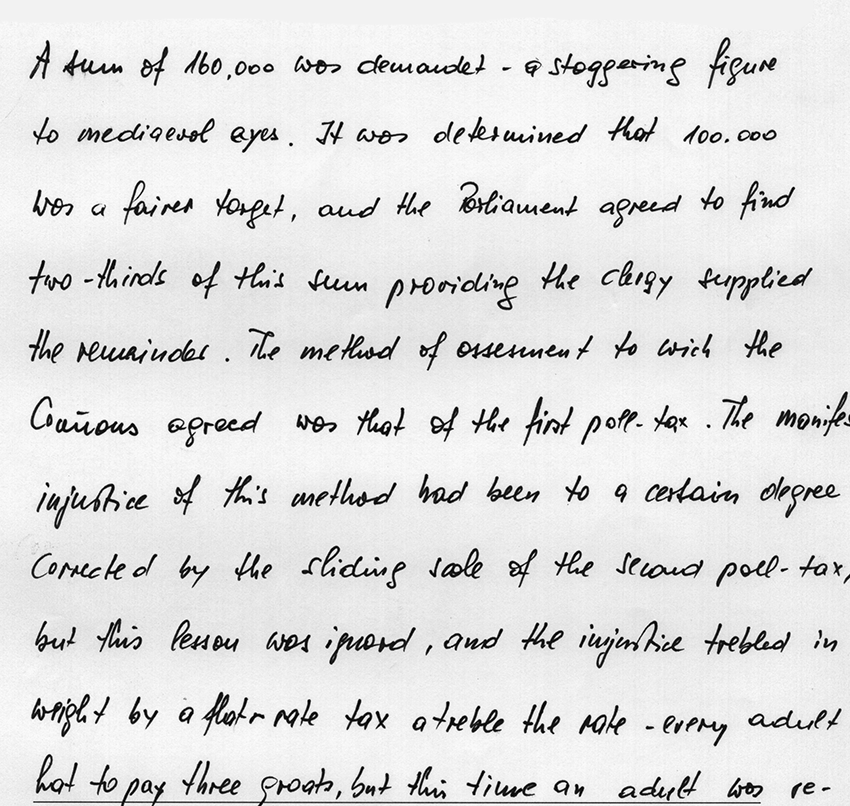 A sum of 160,000 was demandet - a staggering figure
to mediaeval ayes. It was determined that 100.000
was a fairer target, and the Parliament agreed to find
two-thirds of this sum providing the clergy supplied
the remainder. The method of assesment to wich the
Com̄ons agreed was that of the first poll-tax. The manifes
injustice of this method had been to a certain degree
corrected by the sliding scale of the second poll-tax,
but this lesson was ignord, and the injustice trebled in
weight by a flat-rate tax a treble the rate - every adult
hat to pay three groats, but this time an adult was re-